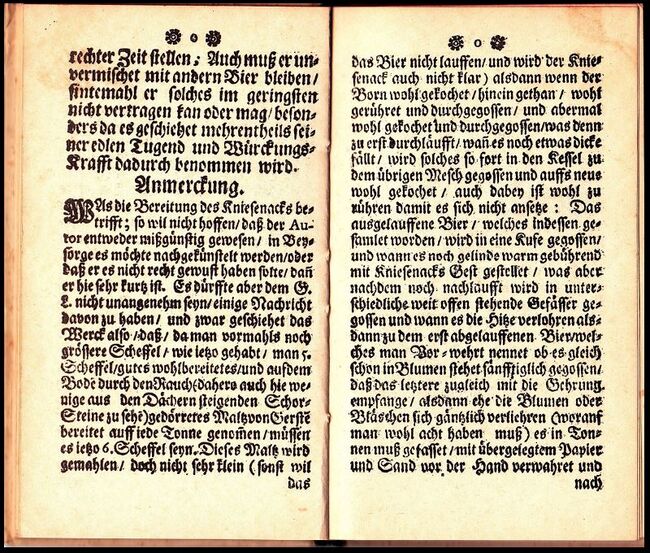 o
rechter Zeit stellen; Auch muß er un-
vermischet mit andern Bier bleiben/
sintemahl er solches im geringsten
nicht vertragen kan oder mag/beson-
ders da es geschiehet mehrentheils sei-
ner edlen Tugend und Würckungs-
Krafft dadurch benommen wird.
Anmerckung.
WAs die Bereitung des Kniesenacks be-
trifft; so wil nicht hoffen/daß der Au-
tor entweder mißgünstig gewesen/in Bey-
sorge es möchte nachgekünstelt werden/oder
daß er es nicht recht gewust haben solte/dañ
er hie sehr kurtz ist. Es dürffte aber dem G.
L. nicht unangenehm seyn/einige Nachricht
davon zu haben/ und zwar geschiehet das
Werck also/daß/ da man vormahls noch
grössere Scheffel/ wie ietzo gehabt/ man 5.
Scheffel/gutes wohlbereitetes/und auf dem
Bode durch den Rauch(dahero auch hie we-
nige aus den Dächern steigenden Schor-
Steine zu sehẽ)gedörretes Maltz von Gerstẽ
bereitet auff iede Tonne genom̃en/müssen
es ietzo 6. Scheffel seyn. Dieses Maltz wird
gemahlen/ doch nicht sehr klein (sonst wil
das
o
das Bier nicht lauffen/und wird der Knie-
senack auch nicht klar) alsdann wenn der
Born wohl gekochet/hinein gethan/ wohl
gerühret und durchgegossen/ und abermal
wohl gekochet und durchgegossen/was denn
zu erst durchläufft/wañ es noch etwas dicke
fällt/ wird solches so fort in den Kessel zu
dem übrigen Mesch gegossen und auffs neue
wohl gekochet/ auch dabey ist wohl zu
rühren damit es sich nicht ansetze: Das
ausgelauffene Bier/ welches indessen ge-
samlet worden/wird in eine Kufe gegossen/
und wann es noch gelinde warm gebührend
mit Kniesenacks Gest gestellet/ was aber
nachdem noch nachlaufft wird in unter-
schiedliche weit offen stehende Gefässer ge-
gossen und wann es die Hitze verlohren als-
dann zu dem erst abgelauffenen Bier/wel-
ches man Vor-wehrt nennet ob es gleich
schon in Blumen stehet sänfftiglich gegossen/
daß das letztere zugleich mit die Gehrung
empfange/ alsdann ehe die Blumen oder
Bläschen sich gäntzlich verliehren (worauf
man wohl acht haben muß) es in Ton-
nen muß gefasset/mit übergelegtem Papier
und Sand vor der Hand verwahret und
nach